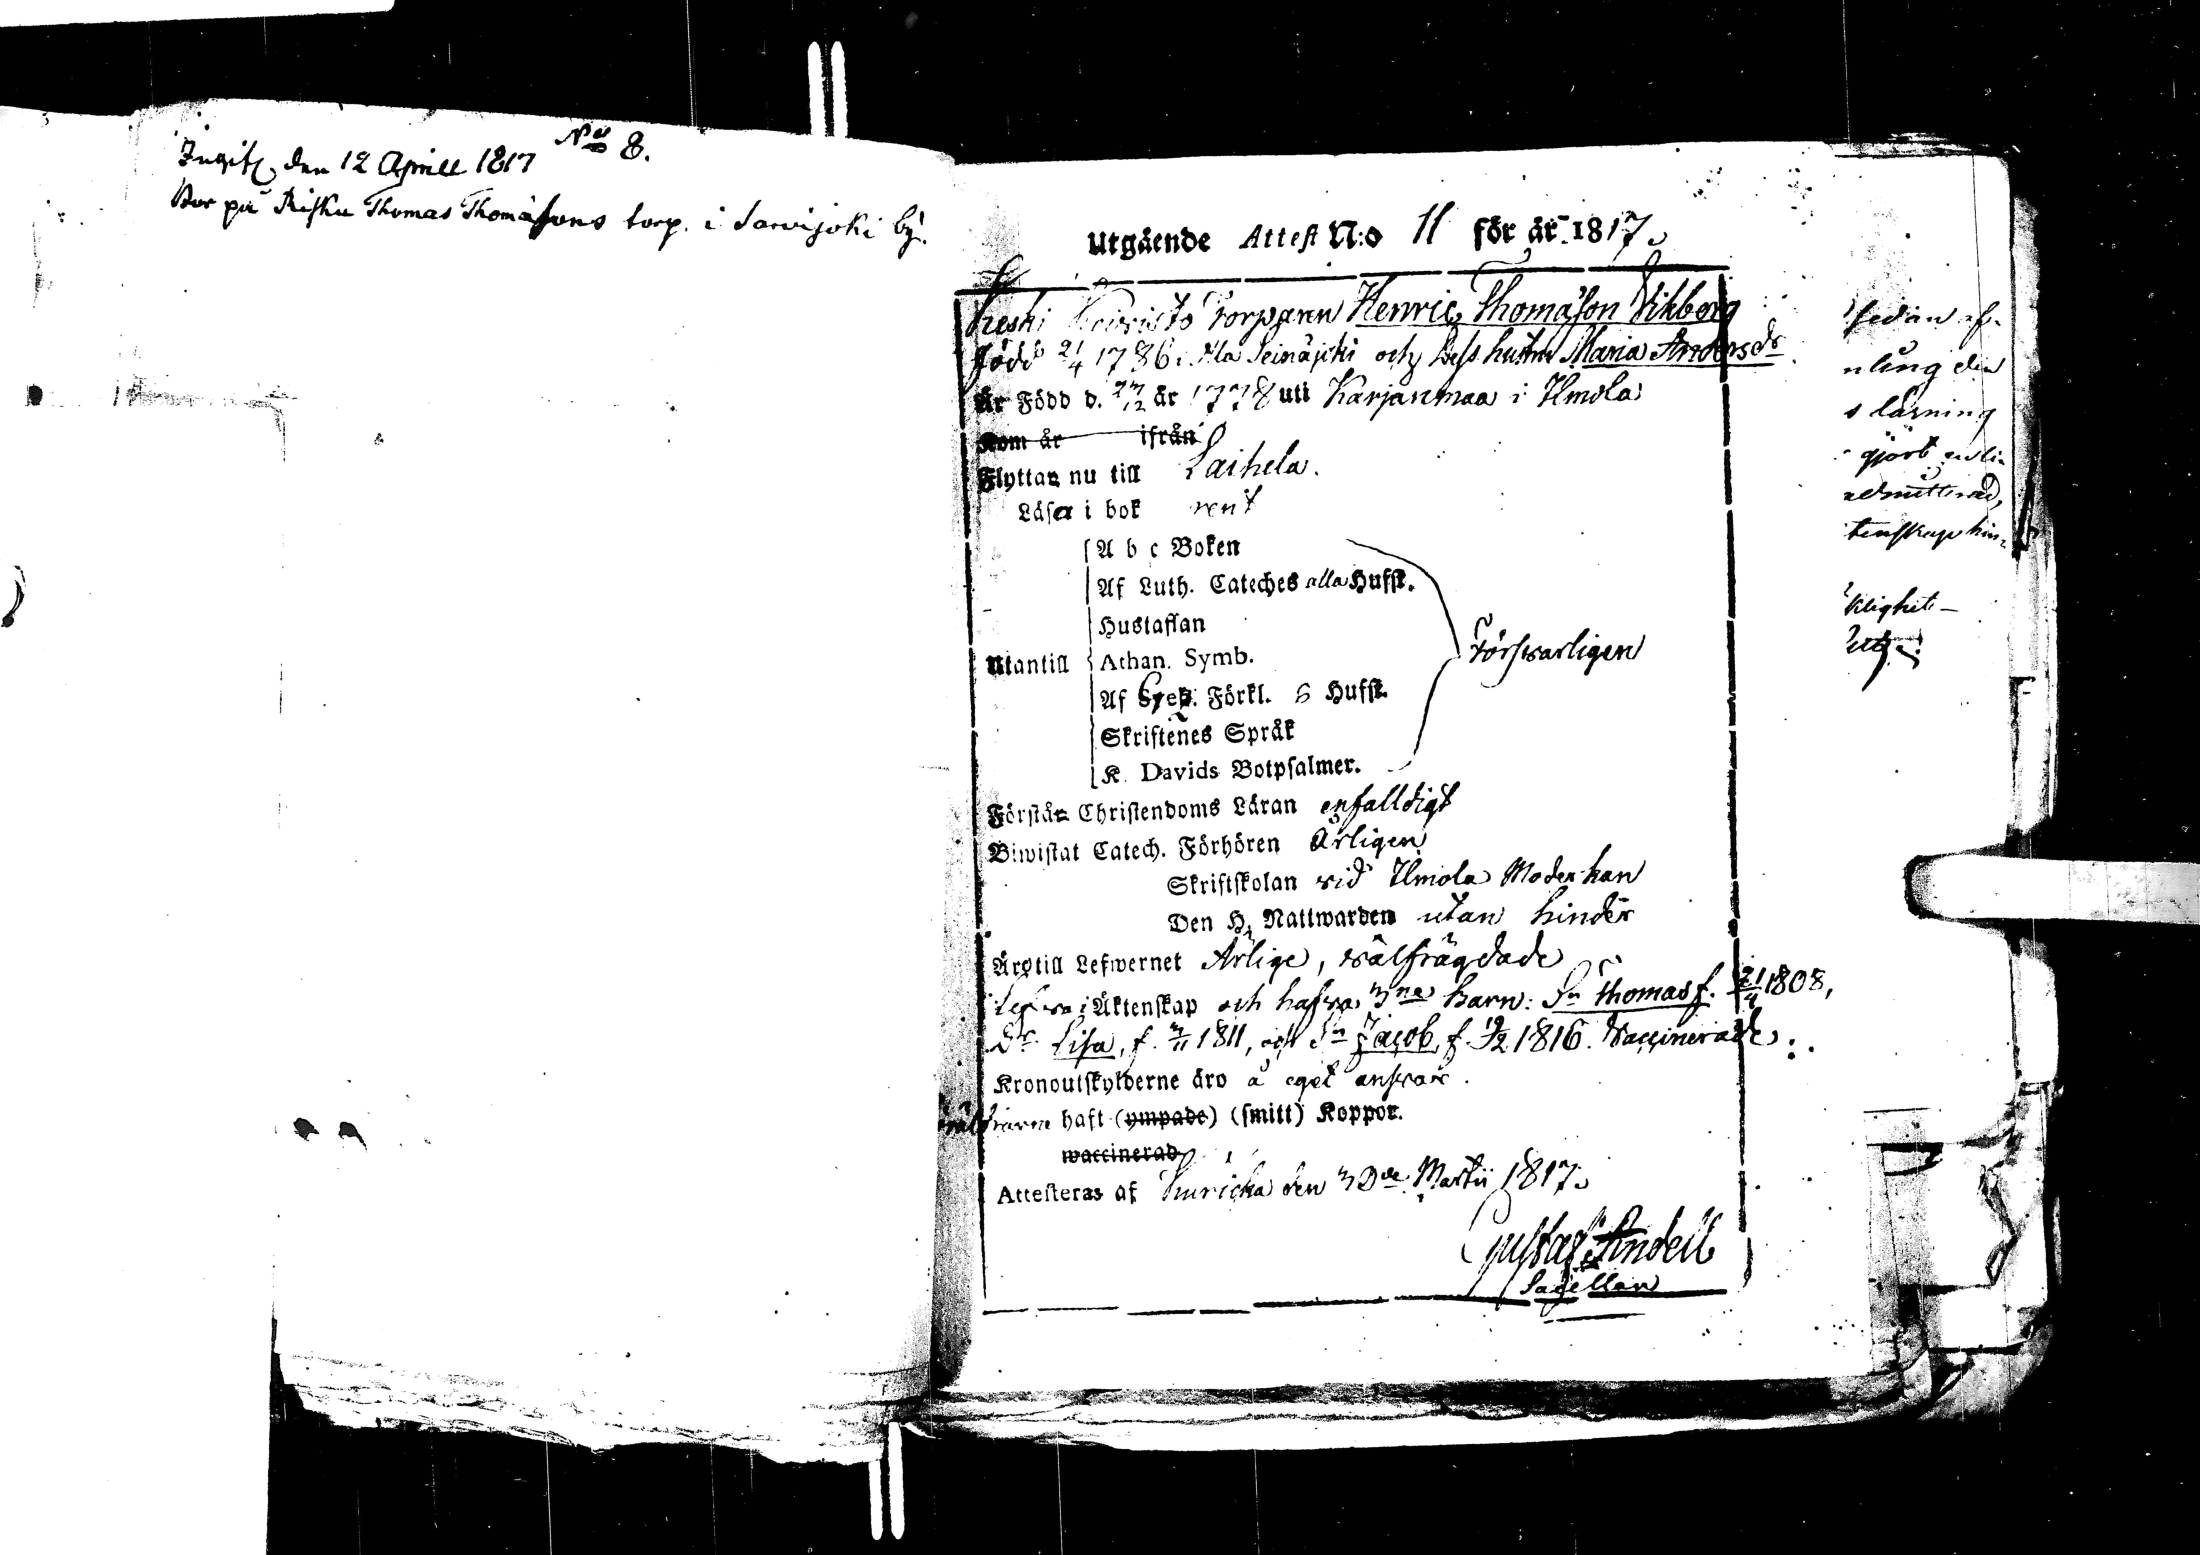 No 8.
Ingift den 12 Aprill 1817
Bor på Risku Thomas Thomassons torp. i Sarvijoki by.
Utgående Attest N:o 11 för år 1817.
Torparen Henric Thomasson Vikborg
född 21/4 1786 i Ala Seinäjoki och Dess hustru Maria Andersdr
Är Född d. 27/12 år 1778 uti Karjanmaa i Ilmola
Kom år ifrån
Flyttar nu till Laihela.
Läsa i bok rent
A b c Boken
Af Luth. Cateches alla Hufst.
Hustaflan
Utantill Athan. Symb. Försvarligen
Af Sveb. Förkl. 6 Hufst.
Skriftenes Språk
K. Davids Botpsalmer.
Förstår Christendoms Läran enfalldigt
Biwistat Catech. Förhören Årligen
Skriftskolan vid Ilmola Moderkan
Den H. Nattwarden utan hinder
Äro till Lefwernet Ärlige, wälfrägdade
Lefva i Äktenskap och hafva 3ne barn: Sn Thomas f. 21/4 1808,
Dr Lisa, f. 3/11 1811, och Sn Jacob f. 19/2 1816. Vaccinerade.
Kronoutskylderne äro å eget ansvar.
Föräldrarne haft (ympade) (smitt) Koppor.
waccinerad
Attesteras af den 3De Martii 1817.
Gustaf
Sacellan
sedan af-
nling den
s läsning
gjort
admitterad,
tenskap hin-
klighet